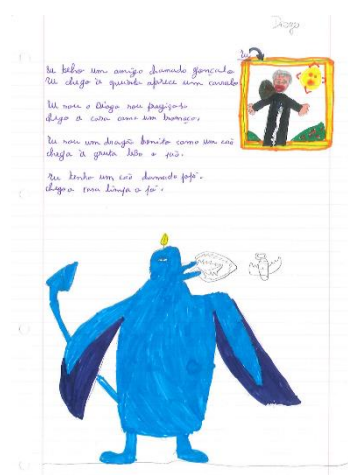 Diogo
Eu
Eu tenho um amigo chamado Gonçalo
Eu chego à quinta aparece um cavalo.
Eu sou o Diogo sou preguiçoso
chego a casa como um
Eu sou um dragão bonito como um cão
chego à gruta
Eu tenho um cão chamado fofó.
chego a casa limpa o pó.